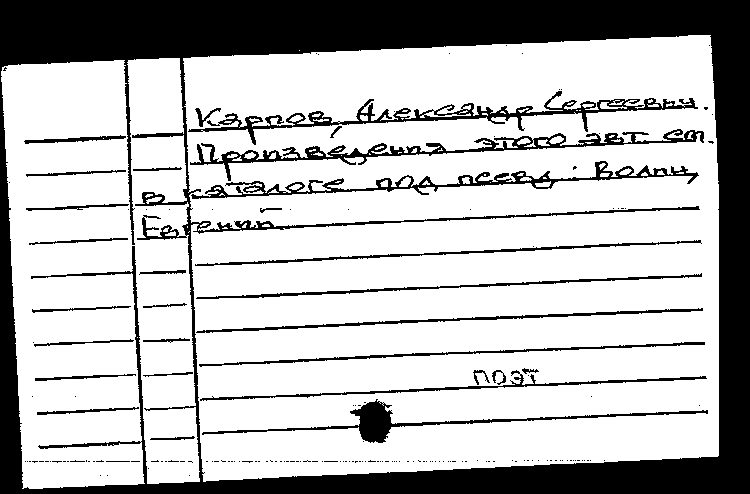 Карпов, Александр Сергеевич.
Произведения этого авт. см.
в каталоге под псевд: Волпи,
Евгений.
поэт